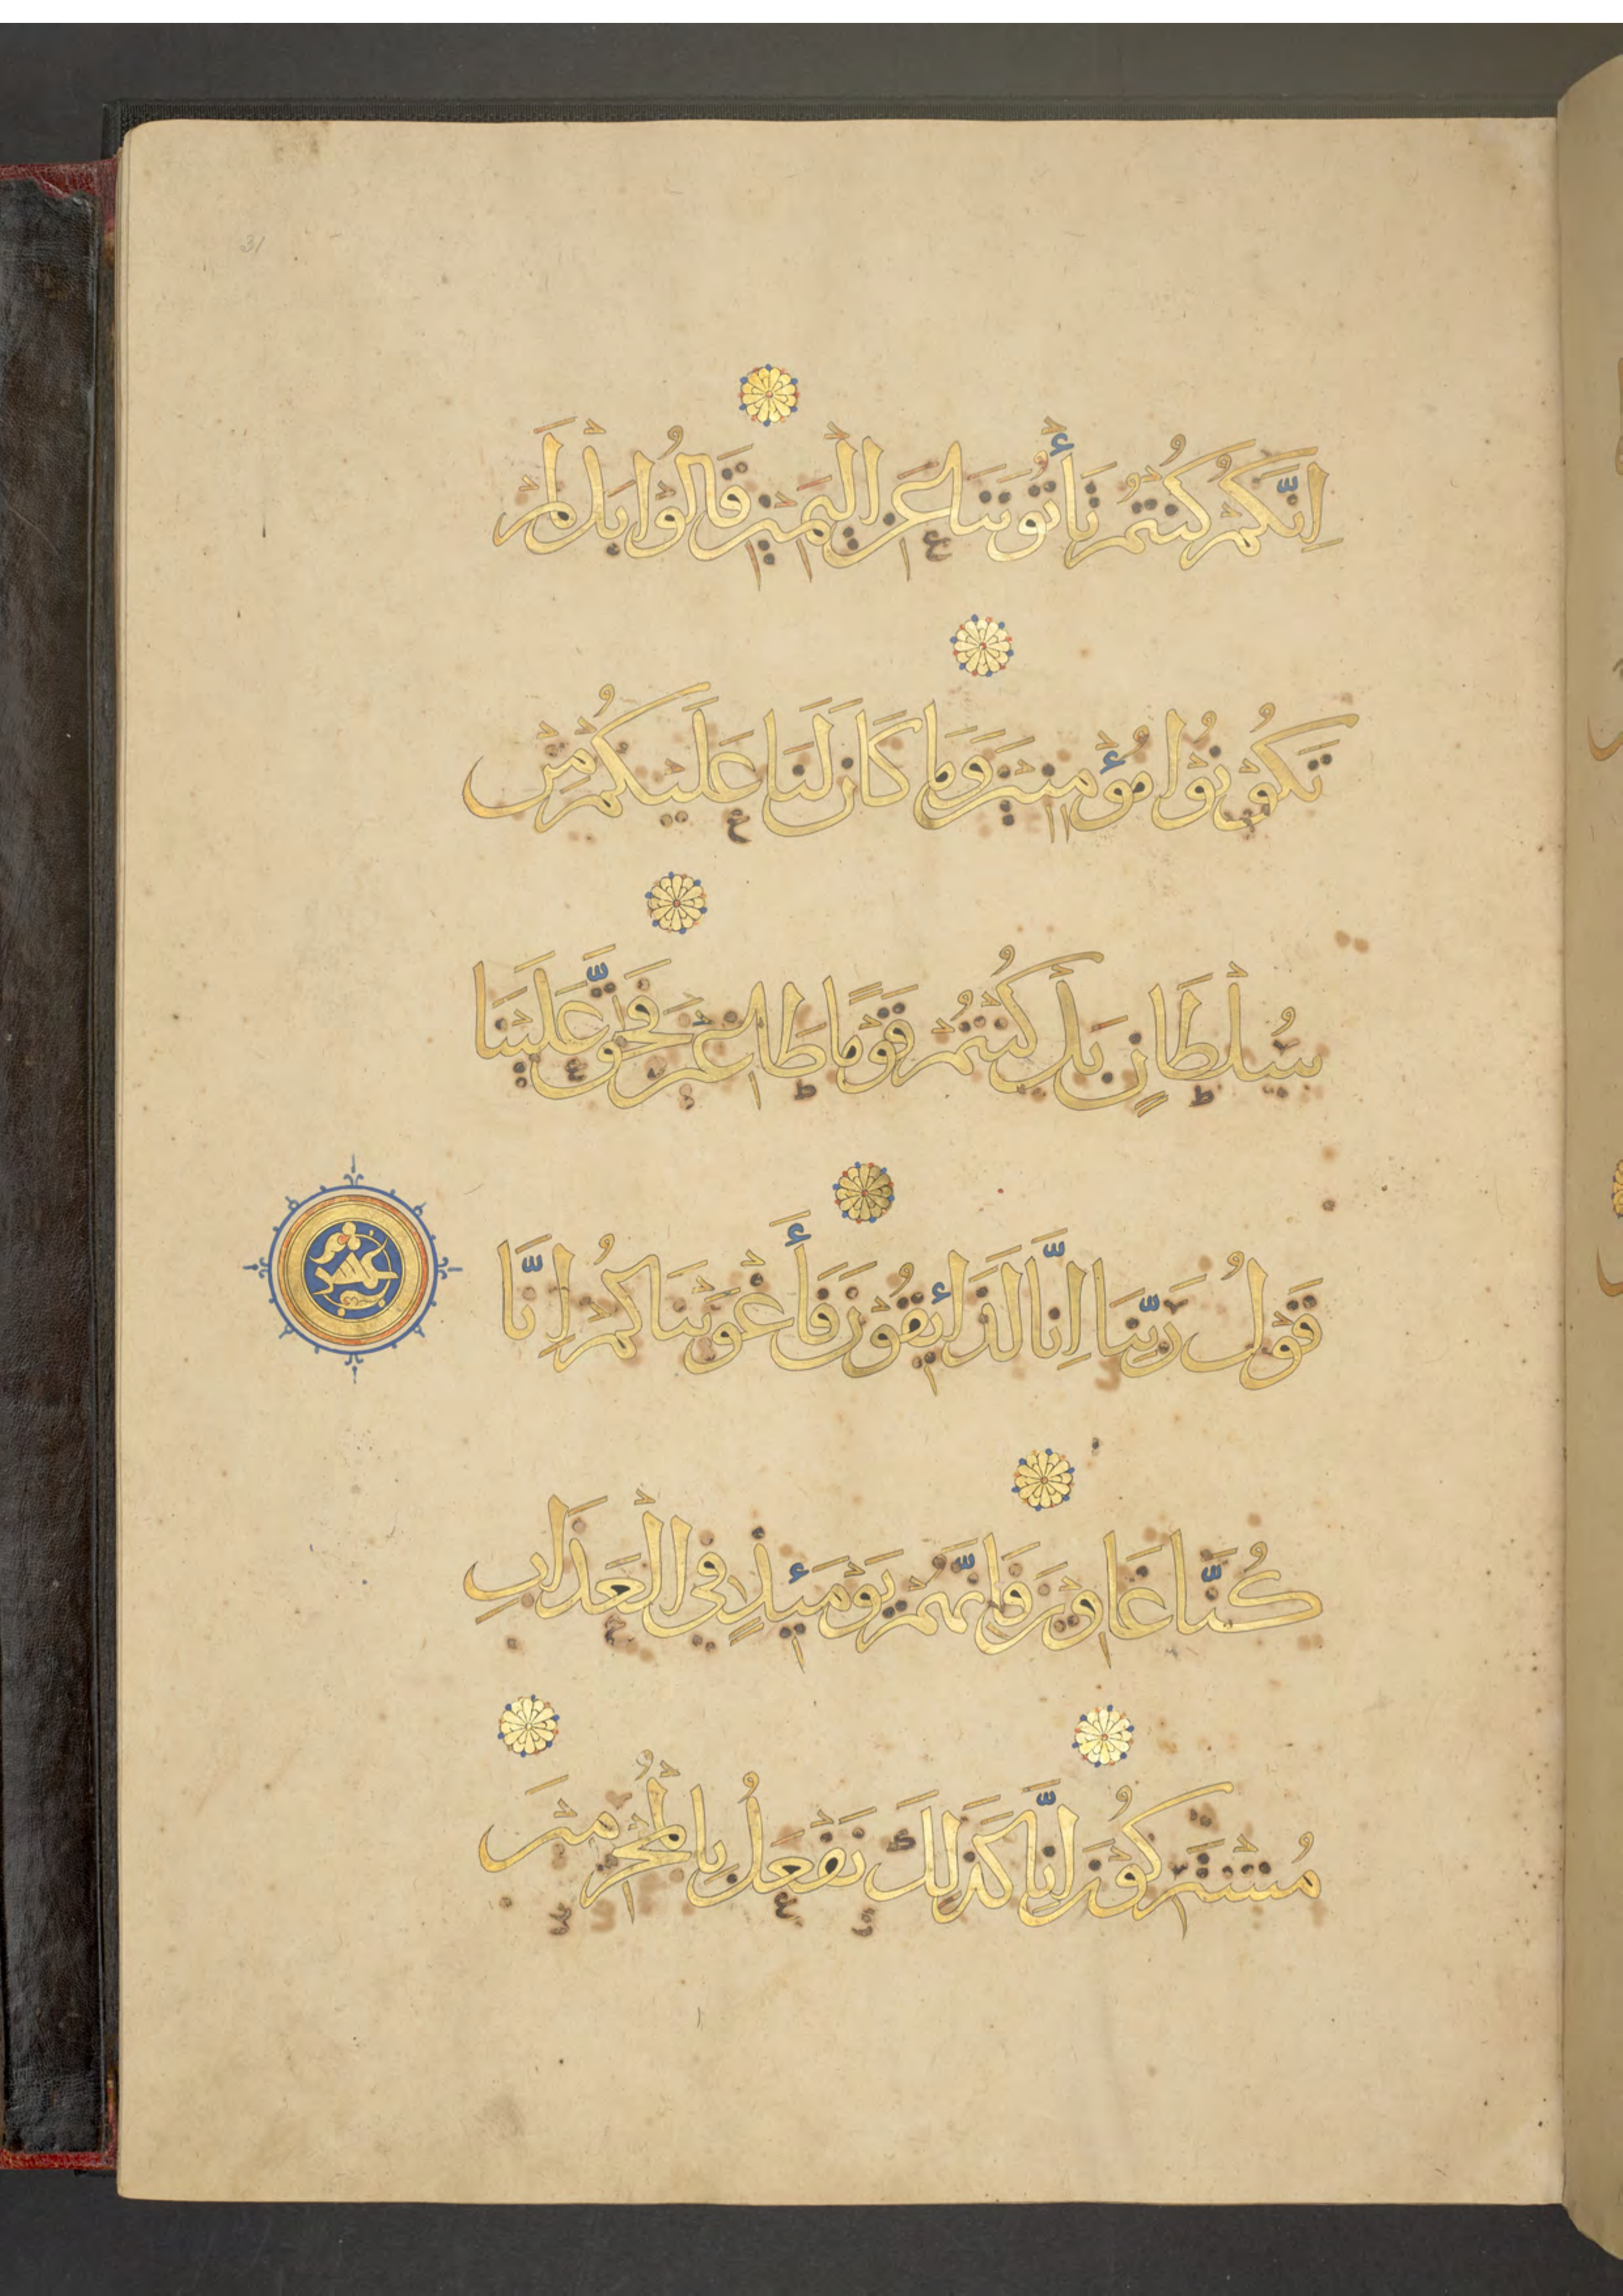 31
اِنَّكُمْ كُنْتُمْ تَأْتُوْنَنَا عَنِ الْيَمِيْنِ قَالُوْا بَلْ لَمْ
تَكُوْنُوْا مُؤْمِنِيْنَ وَمَا كَانَ لَنَا عَلَيْكُمْ مِنْ
سُلْطَانٍ بَلْ كُنْتُمْ قَوْمًا طَاغِيْنَ فَحَقَّ عَلَيْنَا
قَوْلُ رَبِّنَا اِنَّا لَذَائِقُوْنَ فَأَغْوَيْنَاكُمْ اِنَّا
عشر
كُنَّا غَاوِيْنَ فَاِنَّهُمْ يَوْمَئِذٍ فِي الْعَذَابِ
مُشْتَرِكُوْنَ اِنَّا كَذَلِكَ نَفْعَلُ بِالْمُجْرِمِيْنَ